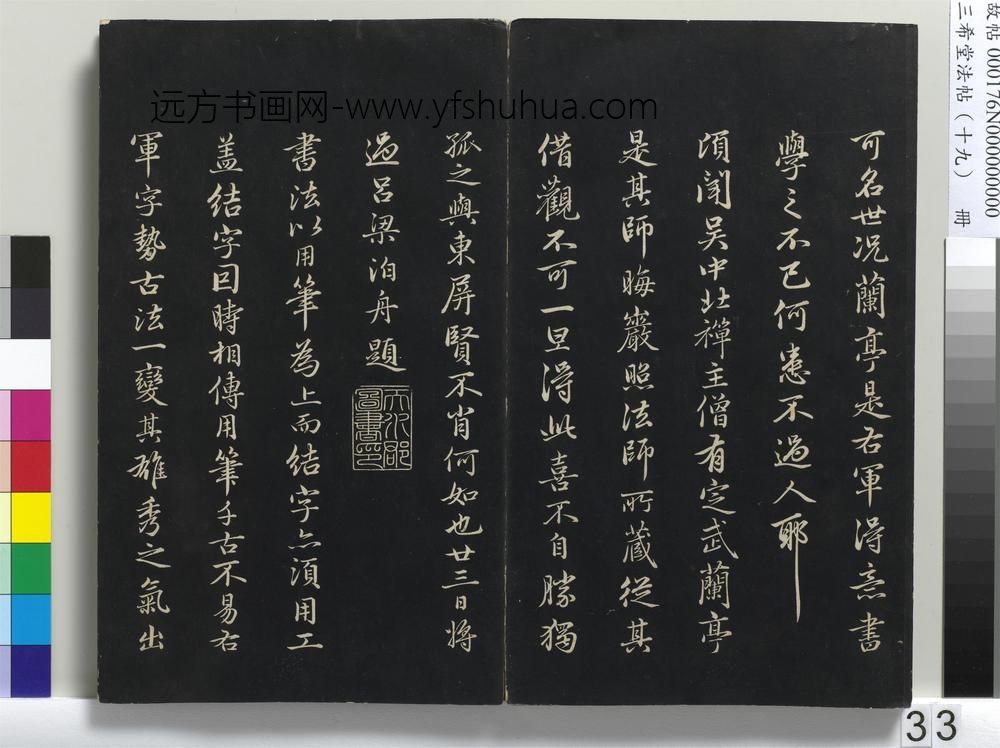 可名世况蘭亭是右軍得意書
學之不已何患不過人耶
頃聞吴中北禪主僧有定武蘭亭
是其師晦巖照法師所蔵從其
借觀不可一旦得此喜不自勝獨
孤之與東屏賢不肖何如也廿三日將
過呂梁泊舟題
書法以用筆為上而結字亦須用工
盖結字因時相傳用筆千古不易右
軍字勢古法一變其雄秀之氣出
天水郡圖書印
远方书画网-www.yfshuhua.com
故帖 000176N000000000
三希堂法帖（十九） 冊
33